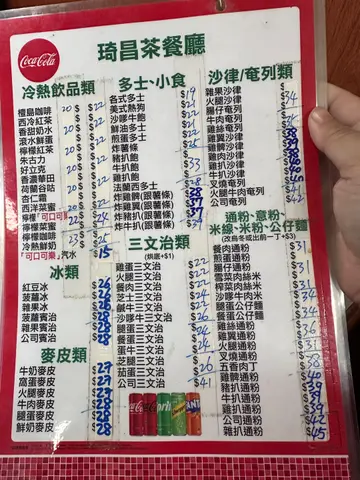 Coca-Cola
琦昌茶餐廳
冷熱飲品類
檀島咖啡 20 $22
西冷紅茶 $22
香甜奶水 20 $22
滾水鮮蛋
檸檬菜蜜 20 $22
朱古力
好立克 20 $22
香濃華田
荷蘭谷咕 20 $22
杏仁霜
西洋菜蜜 20 $22
檸檬「可口可樂」 22 $24
檸檬啡
冷熱鮮奶 23 $25
「可口可樂」汽水 $15
冰類
紅豆冰 $26
菠蘿冰 $26
雜果冰 $28
菠蘿賓治 $28
雜果賓治 $28
公司賓治 $28
麥皮類
牛奶麥皮 $27
窩蛋麥皮 $27
火腿麥皮 $28
牛肉麥皮 $28
腿蛋麥皮 $28
鮮奶麥皮 $28
多士·小食
各式多士 $19
美式熱狗 $21
沙嗲牛飽
鮮油多士 $21
煎蛋多士
炸薯條
豬扒飽 $33
牛扒飽
雞扒飽
法蘭西多士 $28
炸雞髀(跟薯條) $38
炸雞翼(跟薯條) $37
炸豬扒(跟薯條)
炸牛扒(跟薯條)
三文治類
(烘底+$1)
雞蛋三文治 $22
火腿三文治
餐肉三文治 $22
芝士三文治
鹹牛三文治 $24
沙嗲牛三文治
腿蛋三文治 $24
餐蛋三文治
蛋牛三文治 $24
芝腿三文治
茄蛋三文治 $26
公司三文治 $41
沙律/奄列類
雜果沙律
火腿沙律 $34
腸仔奄列
牛肉奄列
雞絲奄列
雞翼沙律 $39
豬扒沙律
雞扒沙律 $40
牛扒沙律
叉燒奄列 $41
火腿牛肉奄列
公司奄列 $42
通粉·意粉·
米線·米粉·公仔麵
(改烏冬或出前一丁+$3)
餐肉通粉
煎蛋通粉 $31
腸仔通粉
雪菜肉絲米 $31
榨菜肉絲米
沙嗲牛肉米 $34
腿蛋公仔麵
餐蛋公仔麵 $34
雞絲通粉
雞翼通粉 $31
叉燒通粉
五香肉丁 $38
雞髀通粉 $40
豬扒通粉 $39
牛扒通粉
公司通粉 $42
雞扒通粉 $45